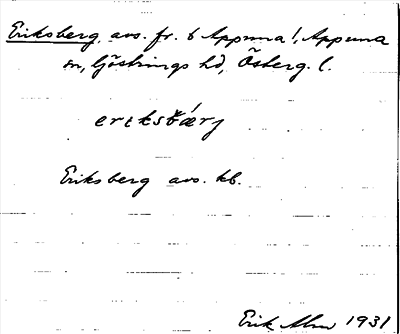 Eriksberg, avs. fr. 6 Appuna!, Appuna
sn, Göstrings hd, Österg. l.
erɩksbǽrj
Eriksberg avs. kb.
Erik Alm 1931